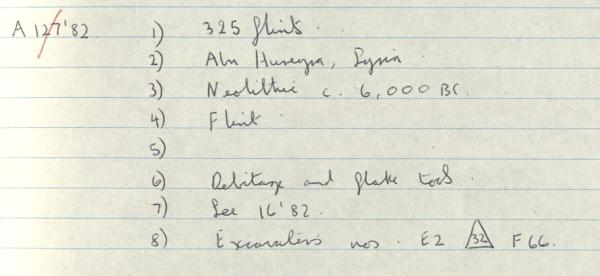 A 127'82 1) 325 flints.
2) Abu Hureyra, Syria.
3) Neolithic c. 6,000 BC.
4) Flint.
5)
6) Debitage and flake tools.
7) See 16'82.
8) Excavators nos. E2 32 F66.